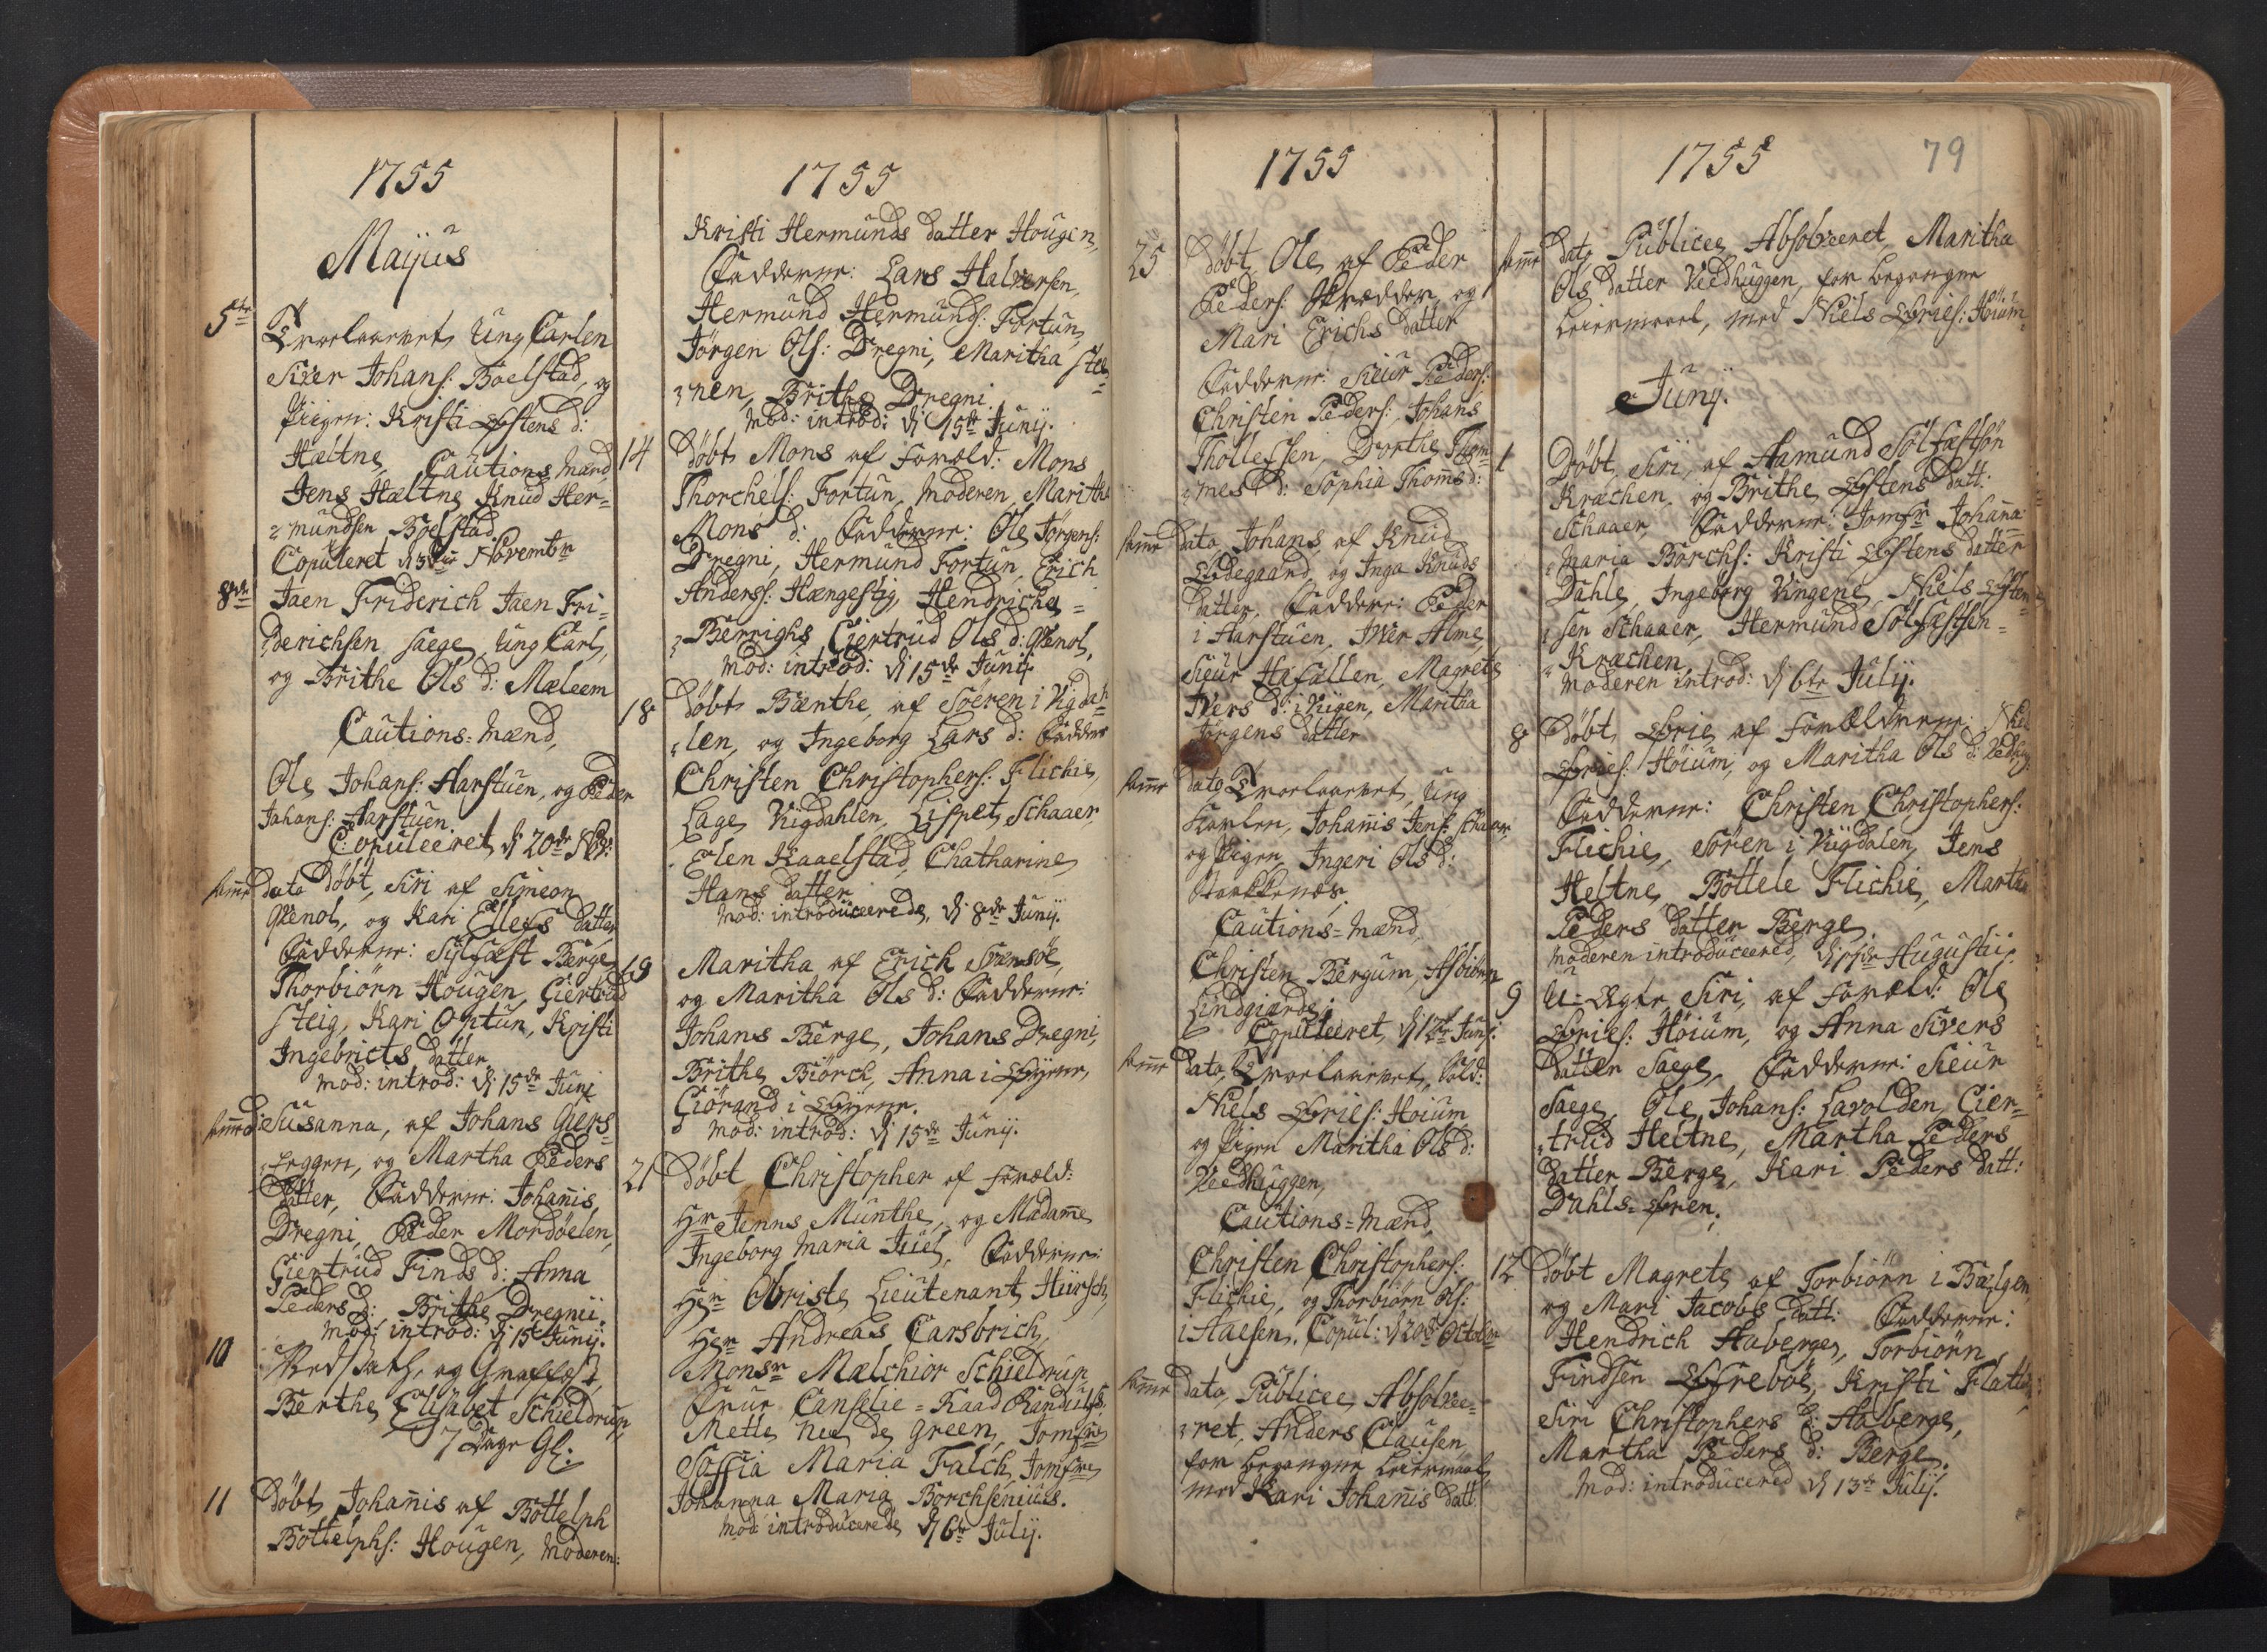 1755
Maijus
5te Troelovet Ung Carlen
Siver Johans: Boelstad, og
Pigen: Kristi Østens d:
Hæltne, Cautions Mænd
Jens Hæltne Knud Her=
=mundsen Boelstad.
Copuleret d 3die Novembr
8de Jaen Friderich Jaen Fri=
=derichsen Saege, Ung Carl,
og Brithe Ols d: Mæleem
Cautions=Mænd,
Ole Johans: Harstuen, og Peder
Johans: Harstuen.
Copuleeret d 20de
Samme dato Døbt, Siri af Simeon
Qvenol, og Kari Ellefs datter
Fadderne: Sylfæst Berge,
Thorbiörn Hougen, Giertrud
Steig, Kari Optun, Kristi
Ingebricts datter
Mod: introd: d 15de Junij
Samme d: Susanna, af Johans
og Martha Peders
datter, Fadderne: Johannis
Dregni, Peder Mordöelen,
Giertrud Finds d: Anna
Peders d: Brithe Dregnii.
Mod: introd: d 15de Junij.
10 og
Berthe Elisabet Schieldrup,
7 Dage Gl:
11 Døbt Johannis af Bottelph
Bottelphs: Hougen, Moderen:
1755
Kristi Hermunds datter Hougen,
Fadderne: Lars Halversen,
Hermund Hermunds: Fortun,
Jörgen Ols: Dregni, Maritha Stee
=nen, Brithe Dregni.
Mod: introd: d 15de Junij.
14 Døbt Mons af Foræld: Mons
Thorchels: Fortun, Moderen, Maritha
Mons d: Fadderne: Ole Jörgens:
Dregni, Hermund Fortun, Erich
Anders: Hængestig, Hendriche =
=Berrighs, Giertrud Ols d: Qvenol,
Mod: introd: d 15de Junij
18 Døbt Bænthe, af Sören i Vigdah
=len, og Ingeborg Lars d: Fadder
Christen Christophers: Flichie,
Lage Vigdahlen, Lispet Schaaer,
Elen Kaaelstad, Chatharine
Hans datter
Mod: introduceerede, d 8de Junij.
19 Maritha af Erich
og Maritha Ols d: Fadderne:
Johans Berge, Johans Dregni,
Brithe Biörck, Anna i Øyene,
Giörand i Øyene.
Mod: introd: d 15de Junij.
21 Døbt Christopher af Foræld:
Hr Jenns Munthe, og Madamme
Ingeborg Maria Juel, Fadderne:
Her Obriste Lieutenant Hiirsch,
Her Andreas Carsbrich,
Monsr Mælchior Schieldrup
Frue Canselie=Raad
Mette Nee de Green, Jomfrue
Soffia Maria Falch, Jomfrue
Johanna Maria Borchseniuss.
Mod: introducerede d 6te Julij.
1755
25 Døbt Ole af Peder
Peders: Skrædder, og
Mari Erichs datter
Fadderne: Sieur Peders:
Christen Peders: Johans
Thollefsen, Dorthe Thom=
=mes d: Sophia Thoms d:
Samme dato, Johans af Knud
Ødegaard, og Inga Knuds
datter, Faddere: Peder
i Harstuen, Iver Alme,
Sieur Hafallen, Magrete
Ivers d: i Viigen, Maritha
Jörgens datter
Samme dato Troelovet, Ung
Karlen, Johannis Jens: Schaar,
og Pigen Ingeri Ols d:
Cautions=Mænd,
Christen Bergum, Asbiörn
Lindgiærde;
Copuleeret, d Junj:
Samme dato, Troelovet, Sold:
Niels Øries: Höium
og Pigen Maritha Ols d:
Veedhuggen,
Cautions=Mænd,
Christen Christophers:
Flichie, og Thorbiörn Ols:
i Aaesen. Copul: d 20de Octobr
Samme dato, Publicee Absolvee=
=ret, Anders Clausen
for begangne Leiermaal
med Kari Johannis datt:
1755 79
Samme dato Publicee Absolveeret, Maritha
Ols datter Veedhuggen, for begangne
Leiermaal, med Niels Øries: Höium
Junij.
1 Døbt, Siri, af Aamund Solfæstsön
Kræchen, og Brithe Østens datt:
Schaaer, Fadderne: Jomfr Johanna
=Maria Borchs: Kristi Østens datter
Dahle, Ingeborg Ungene, Niels Østen
=sen Schaaer, Hermund Solfæstsen=
=Kræchen.
Moderen introd: d 6te Julij.
8 Døbt, Ørie, af Forælderne: Niels
Øries: Höium, og Maritha Ols d:
Fadderne: Christen Christophers:
Flichie, Sören i Viigdalen, Jens
Heltne, Böttele Flichie, Martha
Peders datter Berge,
Moderen introduceered, d Augustij.
9 U=Ægte, Siri, af Foræld: Ole
Øries: Höium, og Anna Sivers
datter Saege, Fadderne: Sieur
Saege, Ole Johans: Lavolden, Gier=
=trud Heltne, Martha Peders
datter Berge, Kari Peders datt:
Dahls=Øren;
12 Døbt Magrete af Torbiörn i Bælgen,
og Mari Jacobs datt: Fadderne:
Hendrich Aaberge, Torbiörn
Findsen Øfreböe, Kristi Flatten,
Siri Christophers d: Aaberge,
Martha Peders d: Berge.
Mod: introducered d 13de Julij.